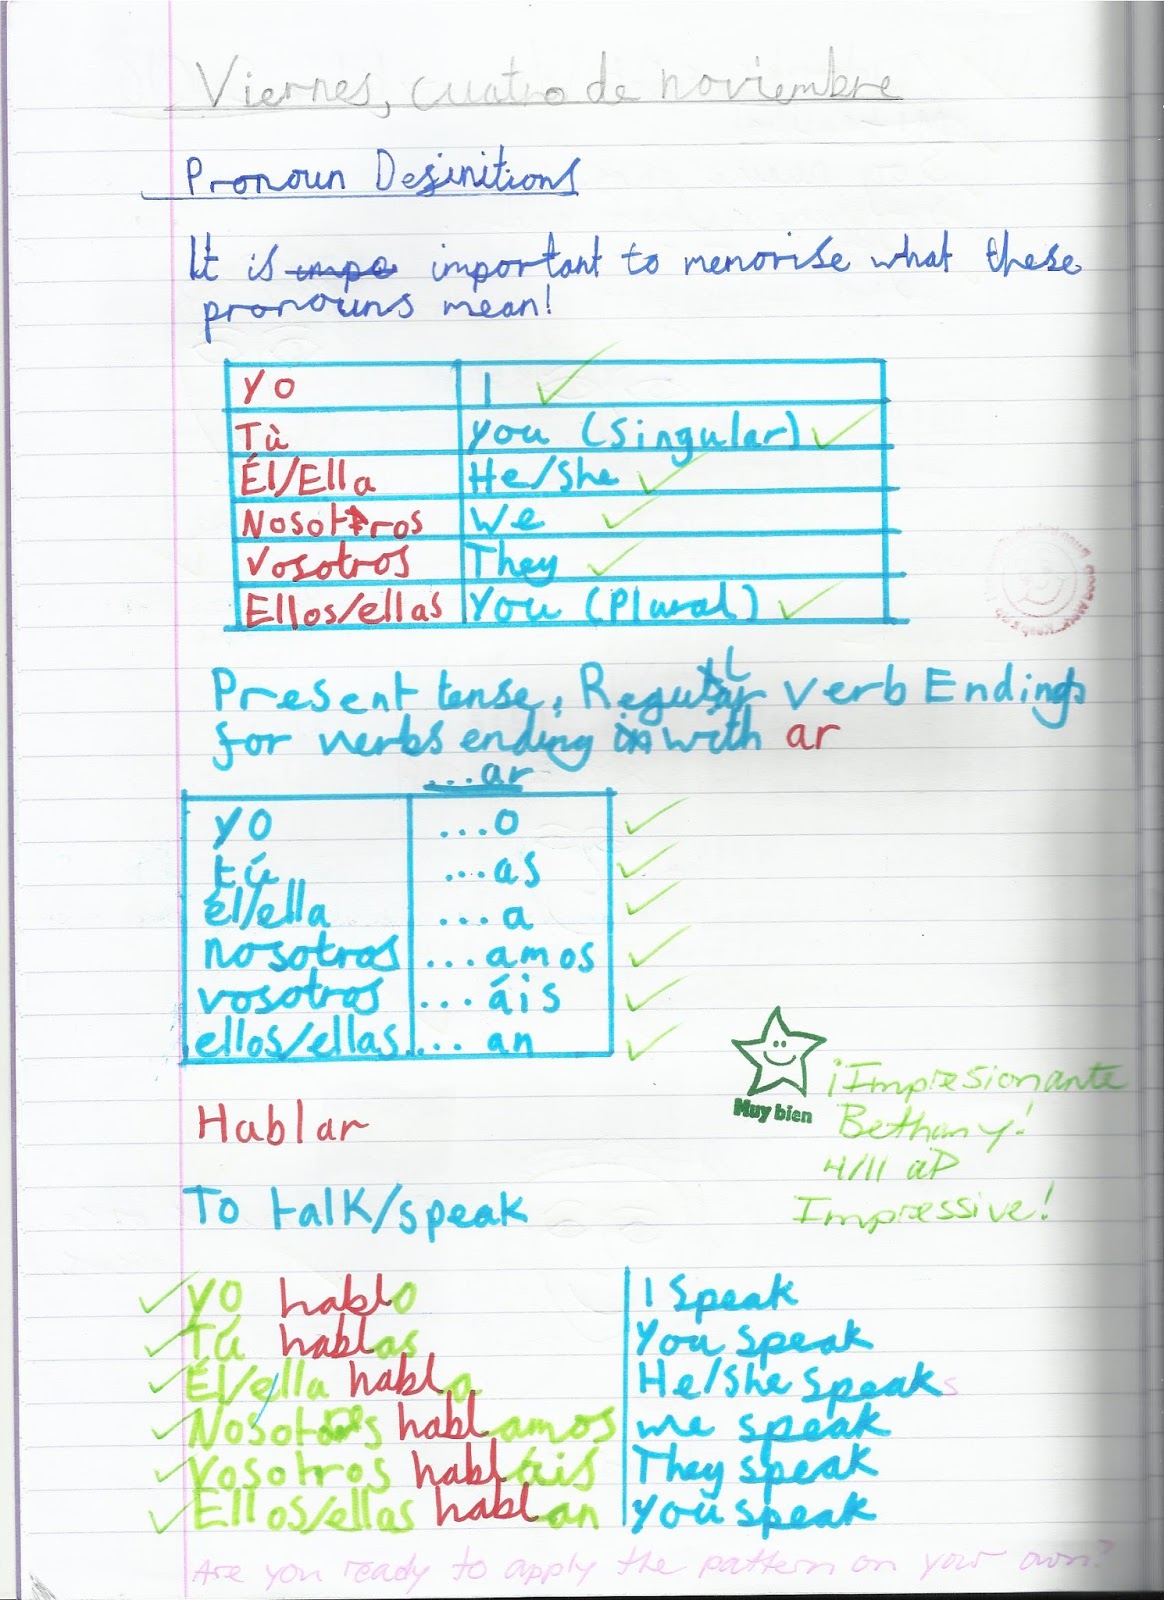 Viernes, cuatro de noviembre
Pronoun Definitions
It is impo important to memorise what these
pronouns mean!
Yo I
Tù You (singular)
Él/Ella He/She
Nosotros We
Vosotros They
Ellos/ellas You (Plural)
Present tense, Regular verb Endings
for verbs ending in with ar
...ar
yo ...o
tú ...as
él/ella ...a
nosotros ...amos
vosotros ...áis
ellos/ellas ... an
Muy bien
¡Impresionante
Bethany!
4/11 aP
Impressive!
Hablar
To talk/speak
Yo hablo I speak
Tú hablas You speak
Él/ella habla He/She speaks
Nosotros hablamos we speak
Vosotros habláis They speak
Ellos/ellas hablan You speak
Are you ready to apply the pattern on your own?